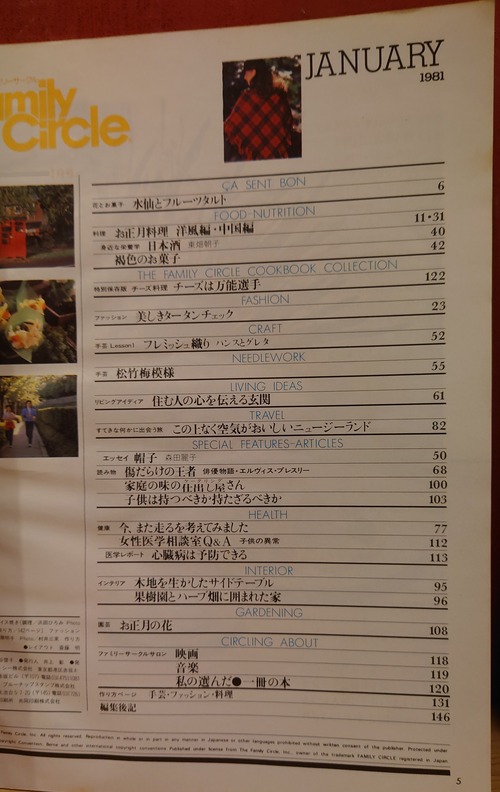 リーサークル
mily
Circle
JANUARY
1981
ÇA SENT BON
花とお菓子 水仙とフルーツタルト 6
FOOD-NUTRITION
料理 お正月料理 洋風編・中国編 11・31
身近な栄養学 日本酒 東畑朝子 40
褐色のお菓子 42
THE FAMILY CIRCLE COOKBOOK COLLECTION
特別保存版 チーズ料理 チーズは万能選手 122
FASHION
ファッション 美しきタータンチェック 23
CRAFT
手芸 Lesson1 フレミッシュ織り ハンスとグレタ 52
NEEDLEWORK
手芸 松竹梅模様 55
LIVING IDEAS
リビングアイディア 住む人の心を伝える玄関 61
TRAVEL
すてきな何かに出会う旅 この上なく空気がおいしいニュージーランド 82
SPECIAL FEATURES-ARTICLES
エッセイ 帽子 森田麗子 50
読み物 傷だらけの王者 俳優物語・エルヴィス・プレスリー 68
家庭の味の仕出し屋さん 100
子供は持つべきか持たざるべきか 103
HEALTH
健康 今、また走るを考えてみました 77
女性医学相談室Q&A 子供の異常 112
医学レポート 心臓病は予防できる 113
INTERIOR
インテリア 木地を生かしたサイドテーブル 95
果樹園とハーブ畑に囲まれた家 96
GARDENING
園芸 お正月の花 108
CIRCLING ABOUT
ファミリーサークルサロン 映画 118
音楽 119
私の選んだ●一冊の本 120
作り方ページ 手芸・ファッション・料理 131
編集後記 146
5